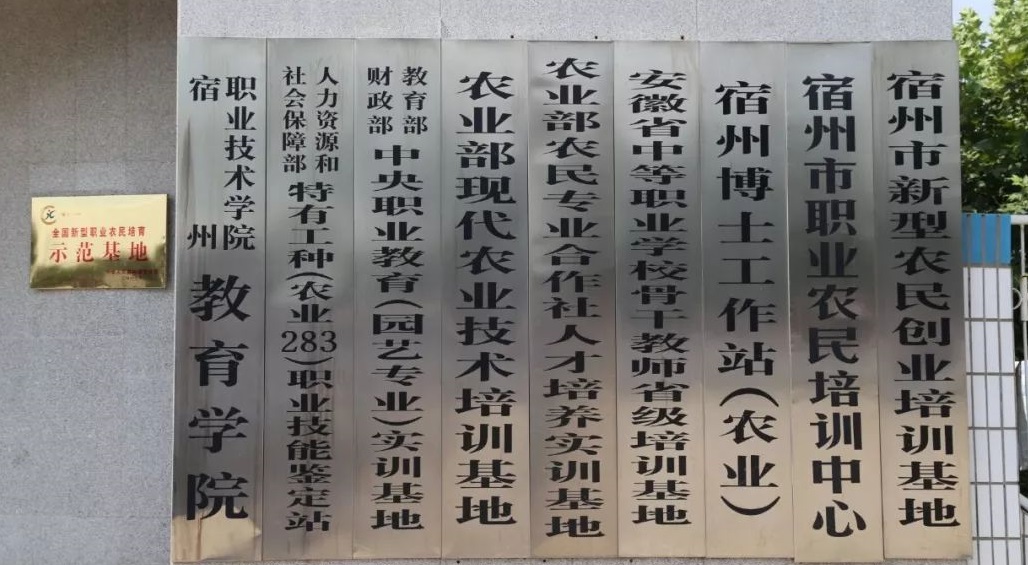 全国新型职业农民培育
示范基地
宿州
职业技术学院
教育学院
人力资源和
社会保障部
特有工种(农业283)职业技能鉴定站
教育部
财政部
中央职业教育(园艺专业)实训基地
农业部现代农业技术培训基地
农业部农民专业合作社人才培养实训基地
安徽省中等职业学校骨干教师省级培训基地
宿州博士工作站(农业)
宿州市职业农民培训中心
宿州市新型农民创业培训基地